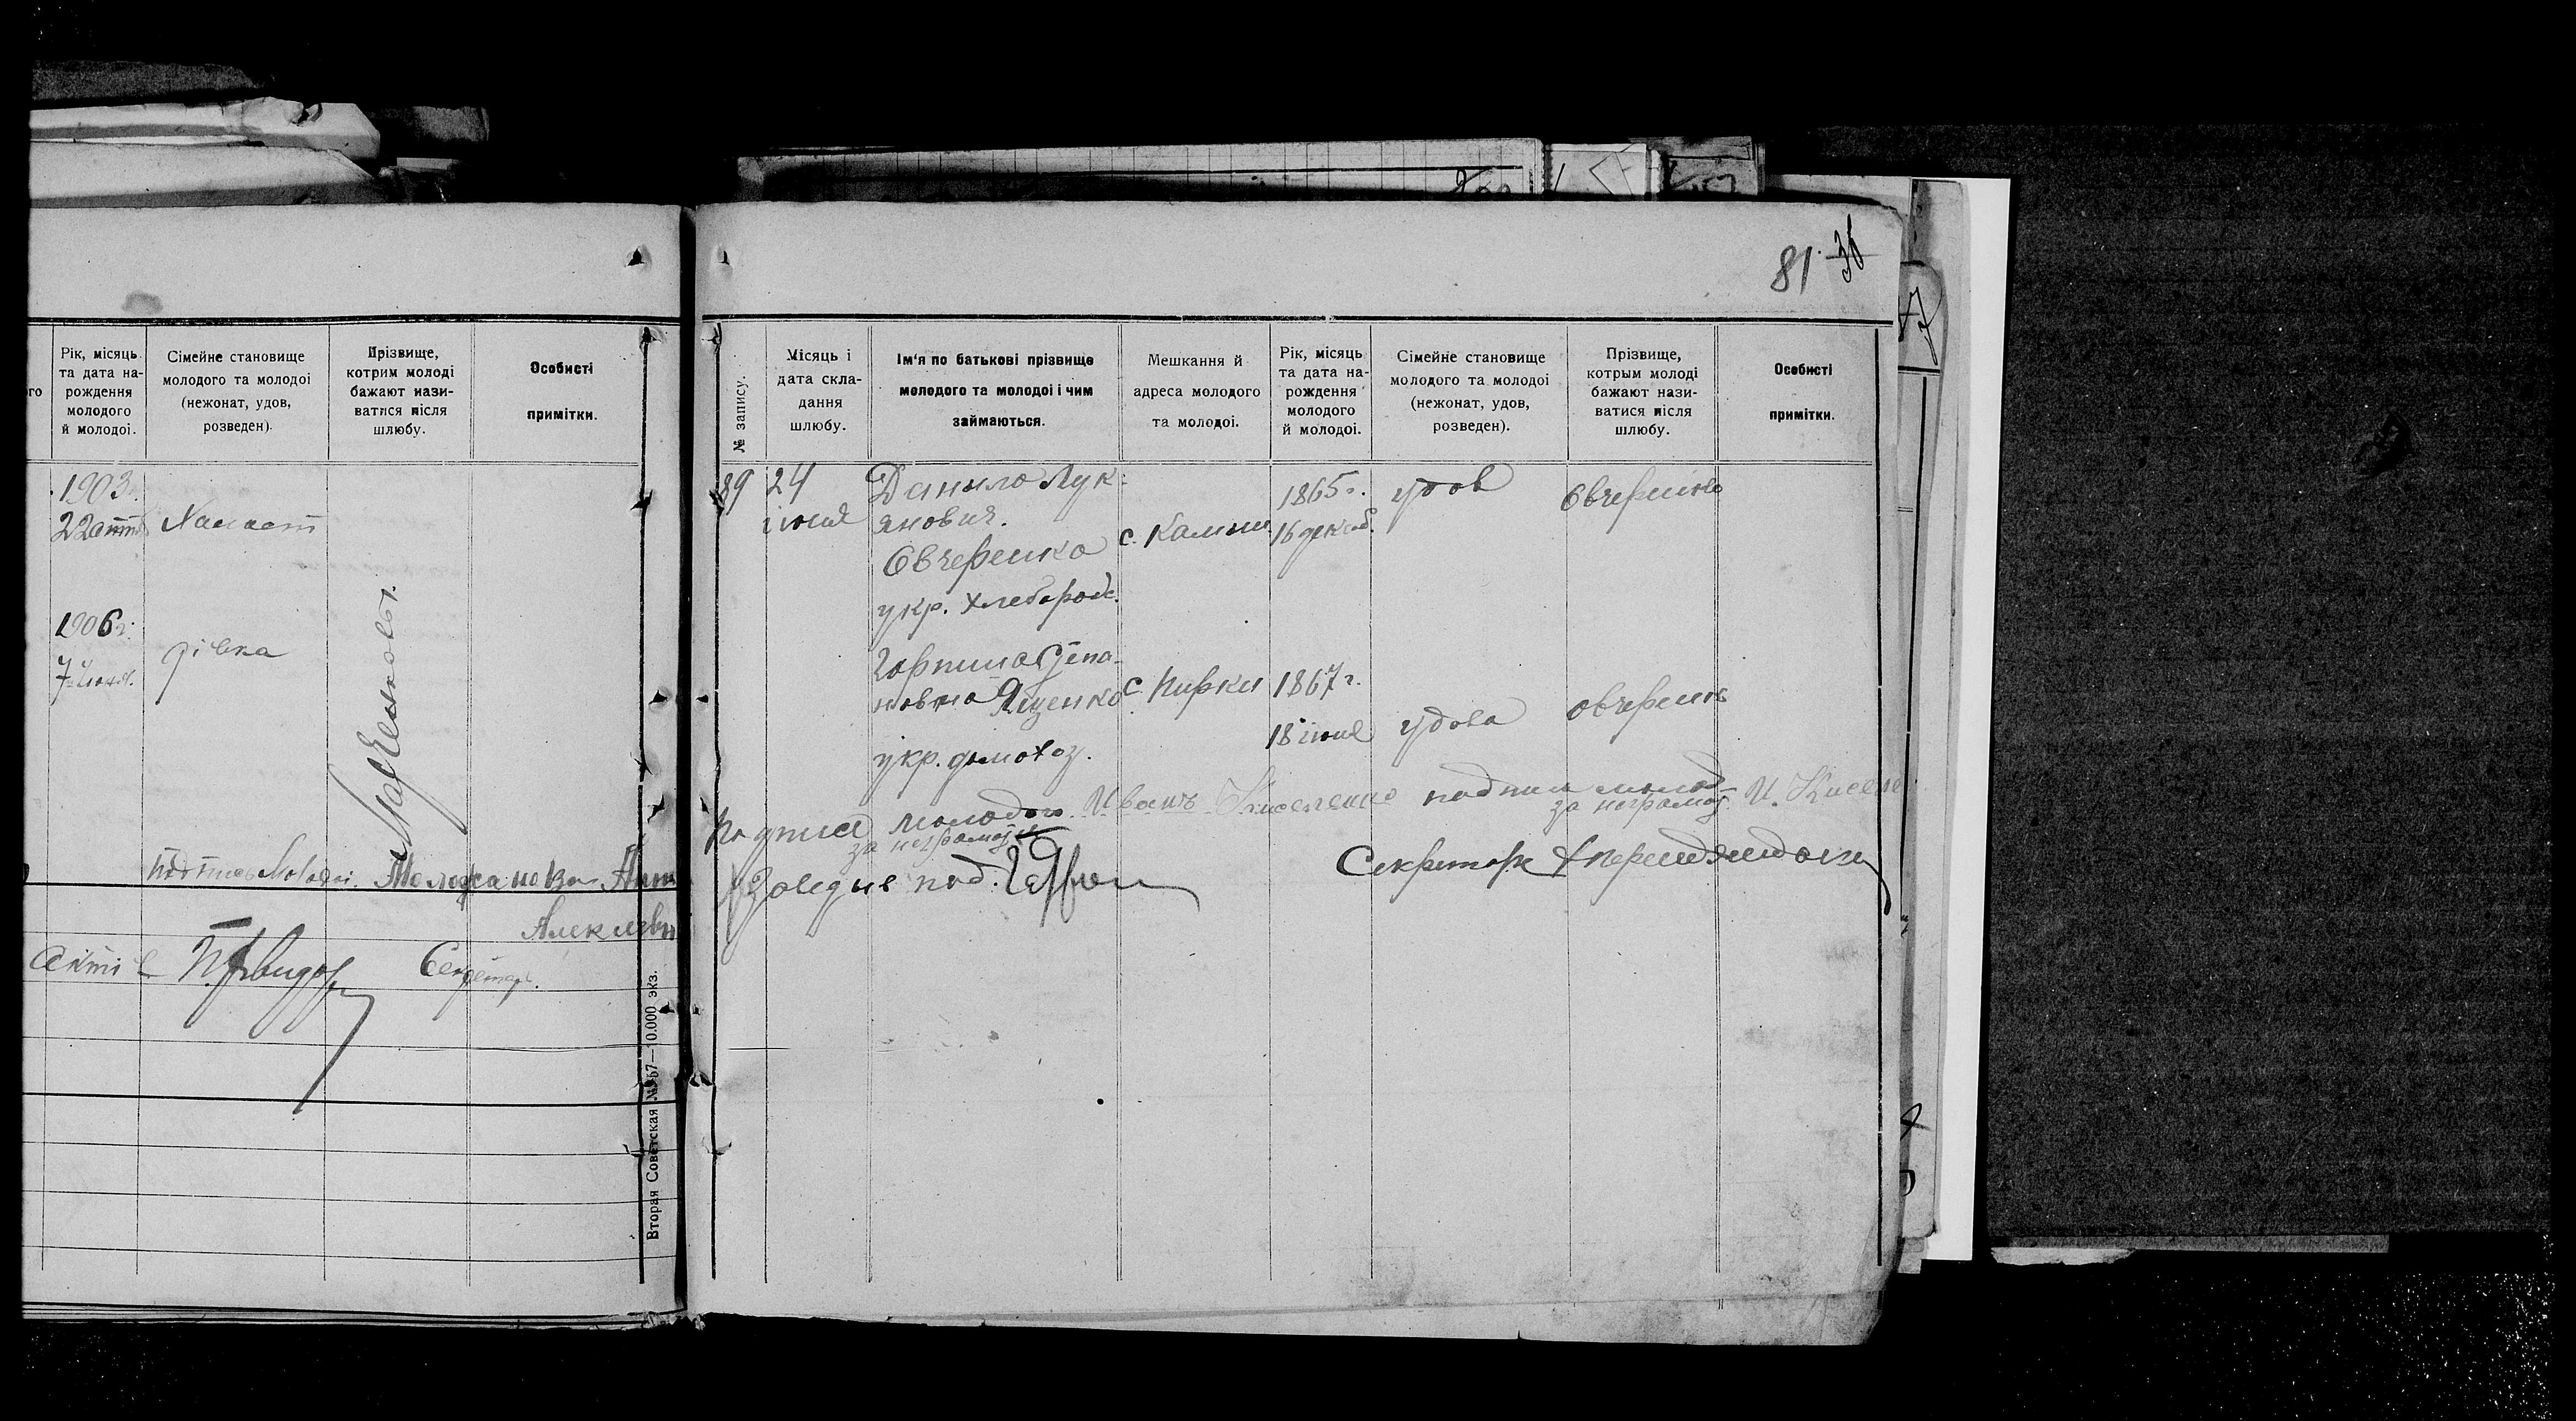 81 36
го
Рік, місяць
та дата на-
рождення
молодого
й молодоі.
Сімейне становище
молодого та молодоі
(нежонат, удов,
розведен).
Прізвище,
котрим молоді
бажают нази-
ватися після
шлюбу.
Особисті
примітки.
1903.
22
1906 г.
дівка
7 июня.
Секретарь.
Вторая Советская № 67—10.000 экз.
№ запису.
Місяць і
дата скла-
дання
шлюбу.
Ім'я по батькові прізвище
молодого та молодоі і чим
займаються.
Мешкання й
адреса молодого
та молодоі.
Рік, місяць
та дата на-
рождення
молодого
й молодоі.
Сімейне становище
молодого та молодоі
(нежонат, удов,
розведен).
Прізвище,
котрым молоді
бажают нази-
ватися після
шлюбу.
Особисті
примітки.
89
24
июня
Данило Лук-
янович.
Овчеренко
укр. хлебороб.
с.
1865 г.
16 декаб.
удов
Овчеренко
Горпина Степа-
новна Яценко
укр. домохоз.
с. Пирки
1867 г.
18 июня
удова
Овчеренк
Подпись молодого Иванъ Киселенко
за неграмот.
за неграмот. И. Киселе
Заведыв. под.
Секретарь